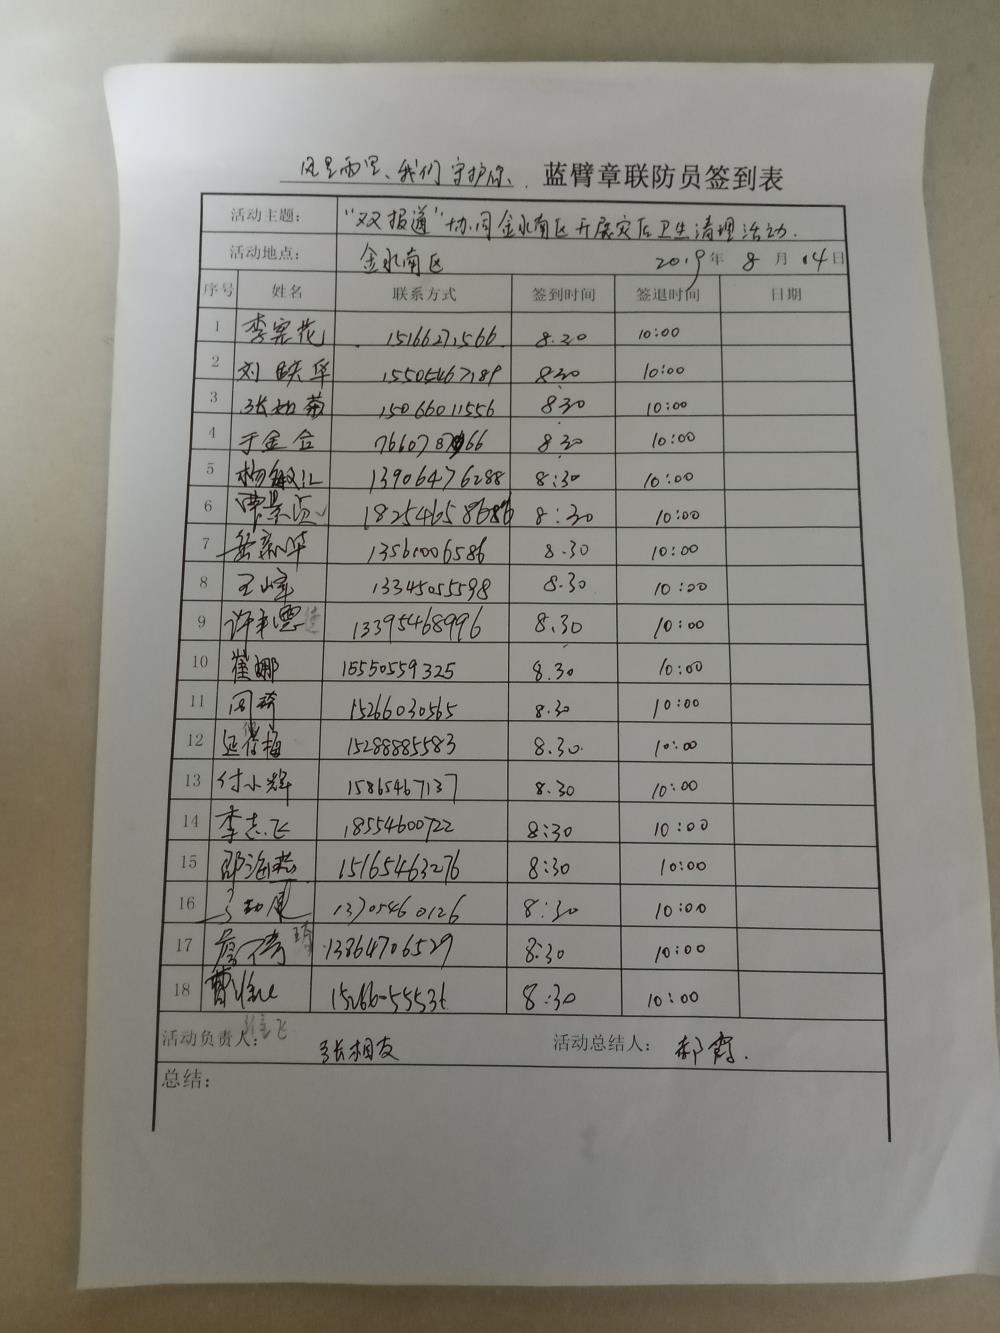 风里雨里、我们守护你、 蓝臂章联防员签到表
活动主题： “双报道”协同金水南区开展灾后卫生清理活动.
活动地点： 金水南区 2019年 8月 14日
序号 姓名 联系方式 签到时间 签退时间 日期
1 15166271566 8.20 10:00
2 刘 华 15505467189 8:30 10:00
3 15066011556 8:30 10:00
4 于金合 8:30 10:00
5 杨敏江 13906476288 8:30 10:00
6 8:30 10:00
7 岳新华 13561006586 8.30 10:00
8 王峰 13345055598 8.30 10:00
9 13395468996 8.30 10:00
10 崔娜 15550559325 8.30 10:00
11 周琦 15266030565 8.30 10:00
12 15288885583 8.30. 10:00
13 付小辉 15865467137 8.30 10:00
14 李志飞 18554600722 8:30 10:00
15 邵海燕 15165463276 8:30 10:00
16 13705460126 8:30 10:00
17 13864706529 8:30 10:00
18 曹 8:30 10:00
活动负责人： 张相友 活动总结人： 郝霞.
总结：